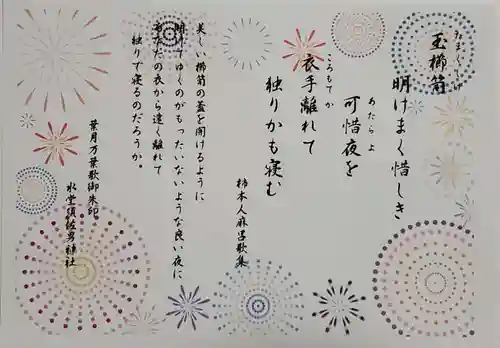 たまくしげ
玉櫛笥
明けまく惜しき
あたらよ
可惜夜を
ころもでか
衣手離れて
独りかも寝む
柿本人麻呂歌集
美しい櫛笥の蓋を開けるように
明けてゆくのがもったいないような良い夜に
あなたの衣から遠く離れて
独りで寝るのだろうか。
葉月万葉歌御朱印
水堂須佐男神社